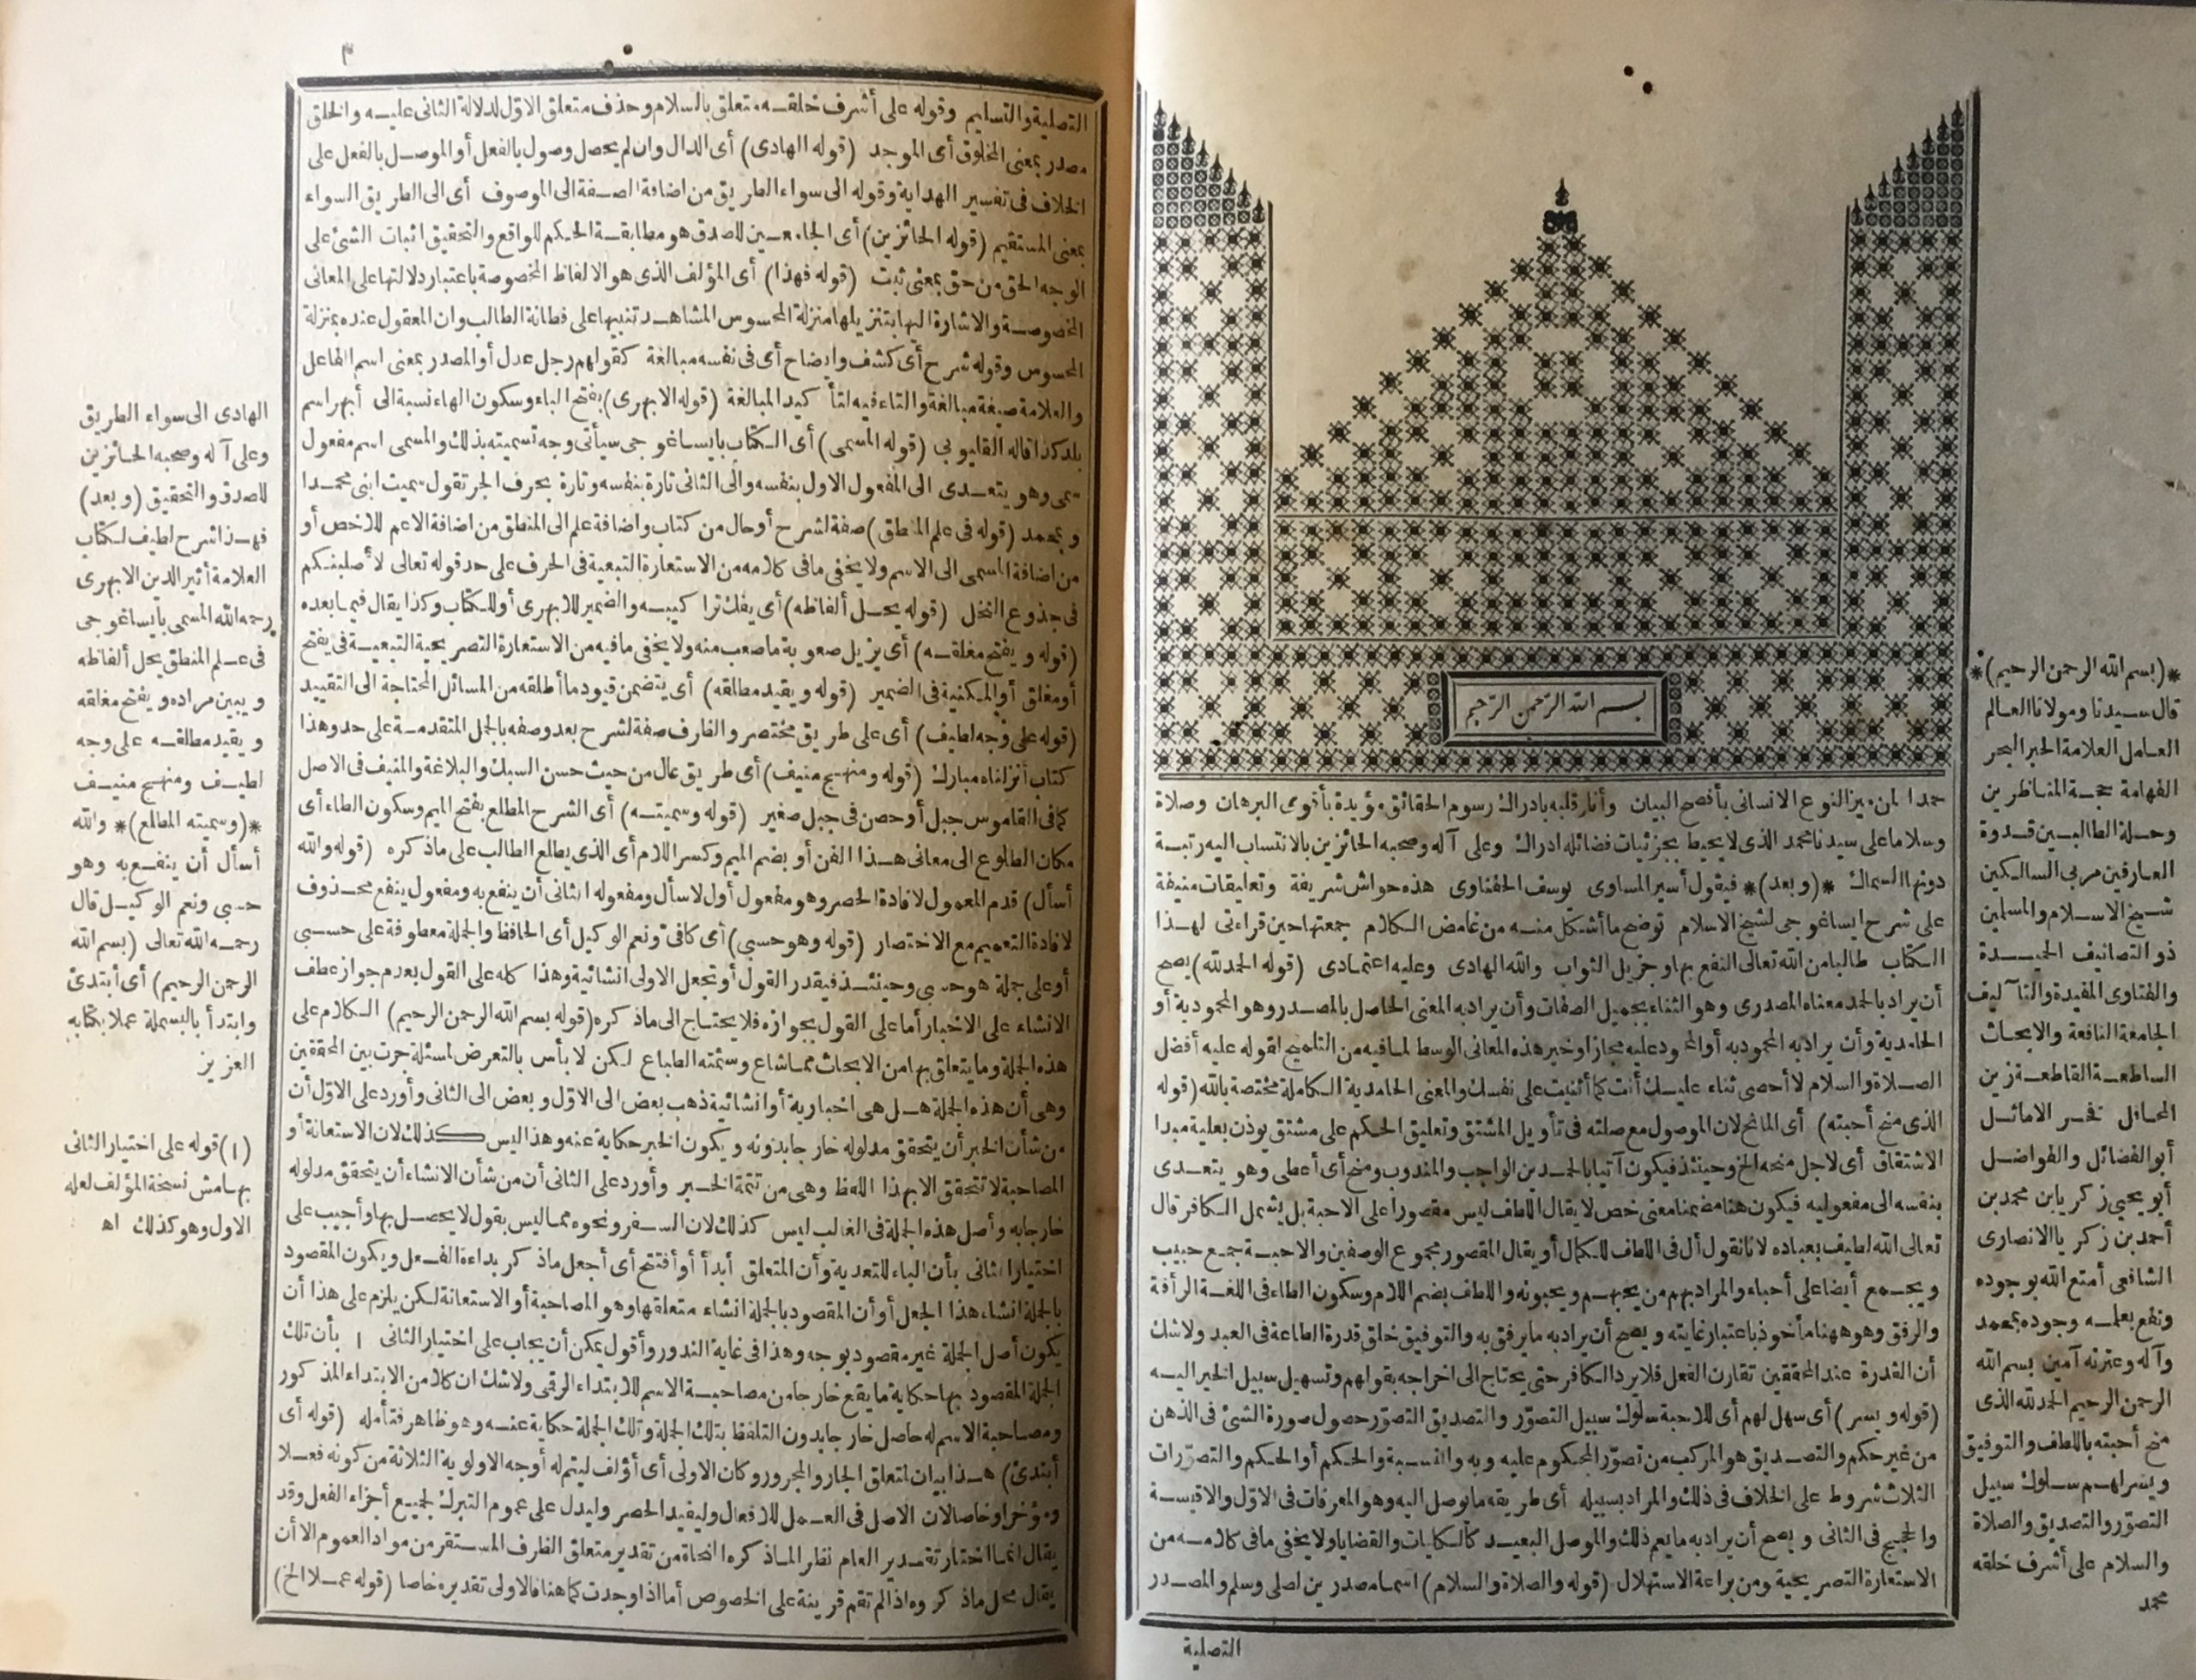 بسم الله الرحمن الرحيم
حمدا لمن ميز النوع الانسانى بأفصح البيان وأنار قلبه بادراك رسوم الحقائق مؤيدة بأقوى البرهان وصلاة
وسلاما على سيدنا محمد الذى لا يحيط بجزئيات فضائله ادراك وعلى آله وصحبه الحائزين بالانتساب اليه رتبة
دونها السماك *(وبعد)* فيقول أسير المساوى يوسف الحفناوى هذه حواش شريفة وتعليقات منيفة
على شرح ايساغوجى لشيخ الاسلام توضح ما أشكل منه من غامض الكلام جمعتها حين قراءتى لهذا
الكتاب طالبا من الله تعالى النفع بها وجزيل الثواب والله الهادى وعليه اعتمادى (قوله الحمد لله) يصح
أن يراد بالحمد معناه المصدرى وهو الثناء بجميل الصفات وأن يراد به المعنى الحاصل بالمصدر وهو المحمودية أو
الحامدية وأن يراد به المحمود به أو المحمود عليه مجازا وخير هذه المعانى الوسط لما فيه من التلميح لقوله عليه أفضل
الصلاة والسلام لا أحصى ثناء عليك أنت كما أثنيت على نفسك والمعنى الحامدية الكاملة مختصة بالله (قوله
الذى منح أحبته) أى المانح لان الموصول مع صلته فى تأويل المشتق وتعليق الحكم على مشتق يوذن بعلية مبدا
الاشتقاق أى لاجل منحه الخ وحينئذ فيكون آتيا بالحمدين الواجب والمندوب ومنح أى أعطى وهو يتعدى
بنفسه الى مفعوليه فيكون هنا مضمنا معنى خص لا يقال اللطف ليس مقصورا على الاحبة بل يشمل الكافر قال
تعالى الله لطيف بعباده لانا نقول أل فى اللطف للكمال أو يقال المقصور مجموع الوصفين والاحبة جمع حبيب
ويجمع أيضا على أحباء والمراد بهم من يحبهم ويحبونه واللطف بضم اللام وسكون الطاء فى اللغة الرأفة
والرفق وهو ههنا مأخوذ باعتبار غايته ويصح أن يراد به ما يرفق به والتوفيق خلق قدرة الطاعة فى العبد ولا شك
أن القدرة عند المحققين تقارن الفعل فلا يرد الكافر حتى يحتاج الى اخراجه بقولهم وتسهيل سبيل الخير اليه
(قوله ويسر) أى سهل لهم أى للاحبة سلوك سبيل التصوّر والتصديق التصوّر حصول صورة الشئ فى الذهن
من غير حكم والتصديق هو المركب من تصوّر المحكوم عليه وبه والنسبة والحكم أو الحكم والتصوّرات
الثلاث شروط على الخلاف فى ذلك والمراد بسبيله أى طريقه ما يوصل اليه وهو المعرفات فى الاوّل والاقيسة
والحجج فى الثانى ويصح أن يراد به ما يعم ذلك والموصل البعيد كالكليات والقضايا ولا يخفى ما فى كلامه من
الاستعارة التصريحية ومن براعة الاستهلال (قوله والصلاة والسلام) اسما مصدرين لصلى وسلم والمصدر
التصلية
*(بسم الله الرحمن الرحيم)*
قال سيدنا ومولانا العالم
العامل العلامة الحبر البحر
الفهامة حجة المناظرين
وحلة الطالبين قدوة
العارفين مربى السالكين
شيخ الاسلام والمسلمين
ذو التصانيف الحميدة
والفتاوى المفيدة والتآليف
الجامعة النافعة والابحاث
الساطعة القاطعة زين
المحافل فخر الاماثل
أبو الفضائل والفواضل
أبو يحيى زكريا بن محمد بن
أحمد بن زكريا الانصارى
الشافعى أمتع الله بوجوده
ونفع بعلمه وجوده بمحمد
وآله وعترته آمين بسم الله
الرحمن الرحيم الحمد لله الذى
منح أحبته باللطف والتوفيق
ويسر لهم سلوك سبيل
التصوّر والتصديق والصلاة
والسلام على أشرف خلقه
محمد
٣
التصلية والتسليم وقوله على أشرف خلقه متعلق بالسلام وحذف متعلق الاوّل لدلالة الثانى عليه والخلق
مصدر بمعنى المخلوق أى الموجد (قوله الهادى) أى الدال وان لم يحصل وصول بالفعل أو الموصل بالفعل على
الخلاف فى تفسير الهداية وقوله الى سواء الطريق من اضافة الصفة الى الموصوف أى الى الطريق السواء
بمعنى المستقيم (قوله الحائزين) أى الجامعين للصدق هو مطابقة الحكم للواقع والتحقيق اثبات الشئ على
الوجه الحق من حق بمعنى ثبت (قوله فهذا) أى المؤلف الذى هو الالفاظ المخصوصة باعتبار دلالتها على المعانى
المخصوصة والاشارة اليها بتنزيلها منزلة المحسوس المشاهد تنبيها على فطانة الطالب وان المعقول عنده بمنزلة
المحسوس وقوله شرح أى كشف وايضاح أى فى نفسه مبالغة كقولهم رجل عدل أو المصدر بمعنى اسم الفاعل
والعلامة صيغة مبالغة والتاء فيه لتأكيد المبالغة (قوله الابهرى) بفتح الباء وسكون الهاء نسبة الى أبهر اسم
بلد كذا قاله القليوبى (قوله المسمى) أى الكتاب بايساغوجى سيأتى وجه تسميته بذلك والمسمى اسم مفعول
سمى وهو يتعدى الى المفعول الاول بنفسه والى الثانى تارة بنفسه وتارة بحرف الجر تقول سميت ابنى محمدا
وبمحمد (قوله فى علم المنطق) صفة لشرح أو حال من كتاب واضافة علم الى المنطق من اضافة الاعم للاخص أو
من اضافة المسمى الى الاسم ولا يخفى ما فى كلامه من الاستعارة التبعية فى الحرف على حد قوله تعالى لأصلبنكم
فى جذوع النخل (قوله يحل ألفاظه) أى يفك تراكيبه والضمير للابهرى أو للكتاب وكذا يقال فيما بعده
(قوله ويفتح مغلقه) أى يزيل صعوبة ما صعب منه ولا يخفى ما فيه من الاستعارة التصريحية التبعية فى يفتح
أو مغلق أو المكنية فى الضمير (قوله ويقيد مطلقه) أى يتضمن قيود ما أطلقه من المسائل المحتاجة الى التقييد
(قوله على وجه لطيف) أى على طريق مختصر والظرف صفة لشرح بعد وصفه بالجمل المتقدمة على حد وهذا
كتاب أنزلناه مبارك (قوله ومنهج منيف) أى طريق عال من حيث حسن السبك والبلاغة والمنيف فى الاصل
كما فى القاموس جبل أو حصن فى جبل صغير (قوله وسميته) أى الشرح المطلع بفتح الميم وسكون الطاء أى
مكان الطلوع الى معانى هذا الفن أو بضم الميم وكسر اللام أى الذى يطلع الطالب على ما ذكره (قوله والله
أسأل) قدم المعمول لافادة الحصر وهو مفعول أول لاسأل ومفعوله الثانى أن ينفع به ومفعول ينفع محذوف
لافادة التعميم مع الاختصار (قوله وهو حسبى) أى كافى ونعم الوكيل أى الحافظ والجملة معطوفة على حسبى
أو على جملة هو حسبى وحينئذ فيقدر القول أو تجعل الاولى انشائية وهذا كله على القول بعدم جواز عطف
الانشاء على الاخبار أما على القول بجوازه فلا يحتاج الى ما ذكره (قوله بسم الله الرحمن الرحيم) الكلام على
هذه الجملة وما يتعلق بها من الابحاث مما شاع وسئمته الطباع لكن لا بأس بالتعرض لمسئلة جرت بين المحققين
وهى أن هذه الجملة هل هى اخبارية أو انشائية ذهب بعض الى الاوّل وبعض الى الثانى وأورد على الاوّل أن
من شأن الخبر أن يتحقق مدلوله خارجا بدونه ويكون الخبر حكاية عنه وهذا ليس كذلك لان الاستعانة أو
المصاحبة لا تتحقق الا بهذا اللفظ وهى من تتمة الخبر وأورد على الثانى أن من شأن الانشاء أن يتحقق مدلوله
خارجا به وأصل هذه الجملة فى الغالب ليس كذلك لان السفر ونحوه مما ليس بقول لا يحصل بها وأجيب على
اختيار الثانى بأن الباء للتعدية وأن المتعلق أبدأ أو أفتتح أى أجعل ما ذكر بداءة الفعل ويكون المقصود
بالجملة انشاء هذا الجعل أو أن المقصود بالجملة انشاء متعلقها وهو المصاحبة أو الاستعانة لكن يلزم على هذا أن
يكون أصل الجملة غير مقصود بوجه وهذا فى غاية الندور وأقول يمكن أن يجاب على اختيار الثانى ١ بأن تلك
الجملة المقصود بها حكاية ما يقع خارجا من مصاحبة الاسم للابتداء الرقمى ولا شك ان كلا من الابتداء المذكور
ومصاحبة الاسم له حاصل خارجا بدون التلفظ بتلك الجملة وتلك الجملة حكاية عنه وهو ظاهر فتأمله (قوله أى
أبتدئ) هذا بيان لمتعلق الجار والمجرور وكان الاولى أى أؤلف ليتم له أوجه الاولوية الثلاثة من كونه فعلا
ومؤخرا وخاصا لان الاصل فى العمل للافعال وليفيد الحصر وليدل على عموم التبرك لجميع أجزاء الفعل وقد
يقال انما اختار تقدير العام نظر الما ذكره النحاة من تقدير متعلق الظرف المستقر من مواد العموم الا أن
يقال محل ما ذكروه اذا لم تقم قرينة على الخصوص أما اذا وجدت كما هنا فالاولى تقديره خاصا (قوله عملا الخ)
الهادى الى سواء الطريق
وعلى آله وصحبه الحائزين
للصدق والتحقيق (وبعد)
فهذا شرح لطيف لكتاب
العلامة أثير الدين الابهرى
رحمه الله المسمى بايساغوجى
فى علم المنطق يحل ألفاظه
ويبين مراده ويفتح مغلقه
ويقيد مطلقه على وجه
لطيف ومنهج منيف
*(وسميته المطلع)* والله
أسأل أن ينفع به وهو
حسبى ونعم الوكيل قال
رحمه الله تعالى (بسم الله
الرحمن الرحيم) أى أبتدئ
وابتدأ بالبسملة عملا بكتابه
العزيز
(١) قوله على اختيار الثانى
بهامش نسخة المؤلف لعله
الاول وهو كذلك اه